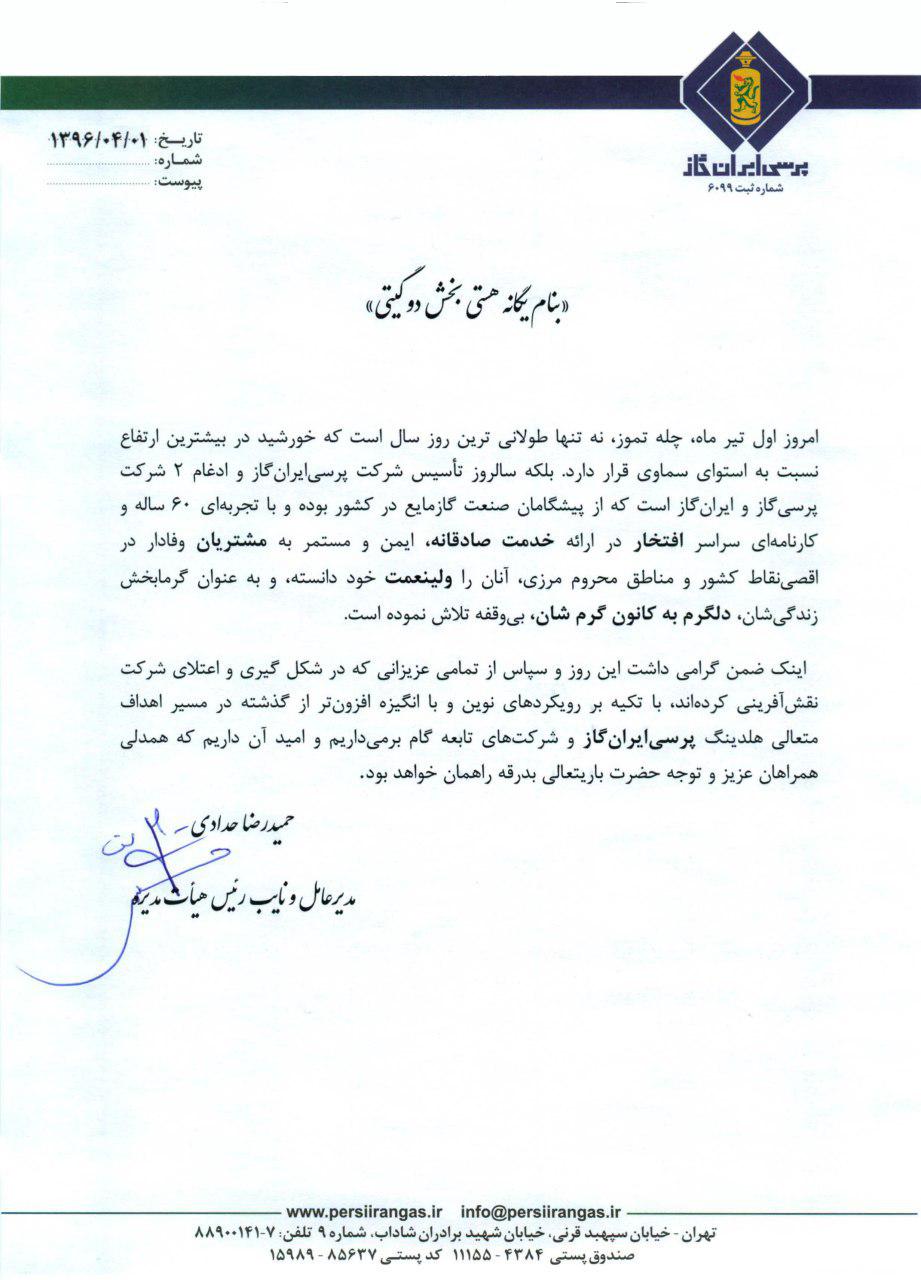 پرسی ایران گاز
شماره ثبت ۶۰۹۹
تاریخ: ۱۳۹۶/۰۴/۰۱
شماره:
پیوست:
«بنام یگانه هستی بخش دو گیتی»
امروز اول تیر ماه، چله تموز، نه تنها طولانی ترین روز سال است که خورشید در بیشترین ارتفاع
نسبت به استوای سماوی قرار دارد. بلکه سالروز تأسیس شرکت پرسی‌ایران‌گاز و ادغام ۲ شرکت
پرسی‌گاز و ایران‌گاز است که از پیشگامان صنعت گازمایع در کشور بوده و با تجربه‌ای ۶۰ ساله و
کارنامه‌ای سراسر افتخار در ارائه خدمت صادقانه، ایمن و مستمر به مشتریان وفادار در
اقصی‌نقاط کشور و مناطق محروم مرزی، آنان را ولینعمت خود دانسته، و به عنوان گرمابخش
زندگی‌شان، دلگرم به کانون گرم شان، بی‌وقفه تلاش نموده است.
اینک ضمن گرامی داشت این روز و سپاس از تمامی عزیزانی که در شکل گیری و اعتلای شرکت
نقش‌آفرینی کرده‌اند، با تکیه بر رویکردهای نوین و با انگیزه افزون‌تر از گذشته در مسیر اهداف
متعالی هلدینگ پرسی‌ایران‌گاز و شرکت‌های تابعه گام برمی‌داریم و امید آن داریم که همدلی
همراهان عزیز و توجه حضرت باریتعالی بدرقه راهمان خواهد بود.
حمیدرضا حدادی
مدیرعامل و نایب رئیس هیأت مدیره
www.persiirangas.ir info@persiirangas.ir
تهران - خیابان سپهبد قرنی، خیابان شهید برادران شاداب، شماره ۹ تلفن: ۷-۸۸۹۰۰۱۴۱
صندوق پستی ۴۳۸۴ - ۱۱۱۵۵ کد پستی ۸۵۶۳۷ - ۱۵۹۸۹